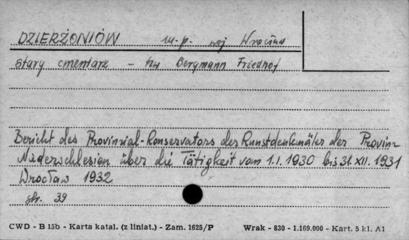 DZIERŻONIÓW m-p. woj Wrocław
stary cmentarz - tzw Bergmann Friedhof
Bericht des Provinzial-Konservators der Kunstdenkmäler der Provinz
Niederschlesien über die Tätigkeit vom 1.I.1930 bis 31 XII. 1931
Wrocław 1932
str. 39
CWD - B 15b - Karta katal. (z liniat.) - Zam. 1625/P Wrak - 830 - 1.169.000 - Kart. 5 kl. A1